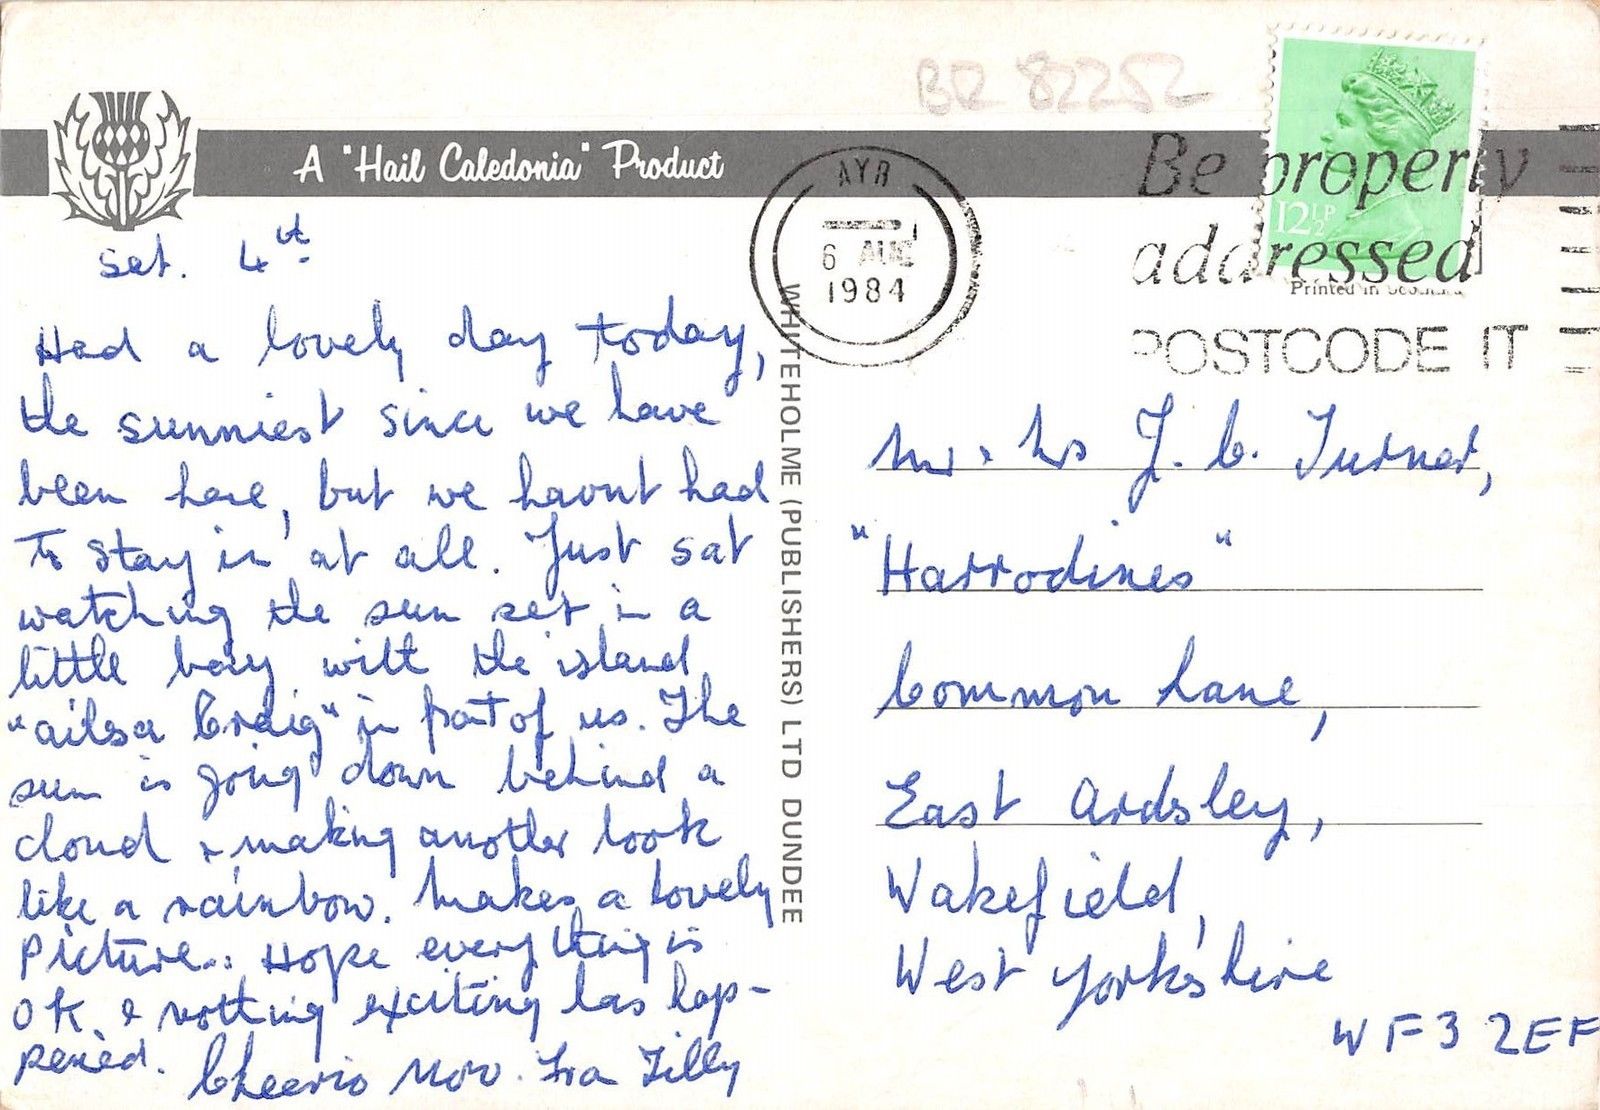 BR 82252
A "Hail Caledonia" Product
AYR
6 AUG
1984
Be properly
addressed
POSTCODE IT
12½P
Printed in
WHITEHOLME (PUBLISHERS) LTD DUNDEE
Sat. 4th
Had a lovely day today,
the sunniest since we have
been here, but we havnt had
to stay in at all. Just sat
watching the sun set in a
little bay with the island
"ailsa Craig" in front of us. The
sun is going down behind a
cloud & making another look
like a rainbow. Makes a lovely
picture. Hope everything is
OK & nothing exciting has hap-
pened. Cheerio Nov. Ira Tilly
Mr & Mrs J. C. Turner,
"Harrodines"
Common Lane,
East Ardsley,
Wakefield,
West Yorkshire
WF3 2EF